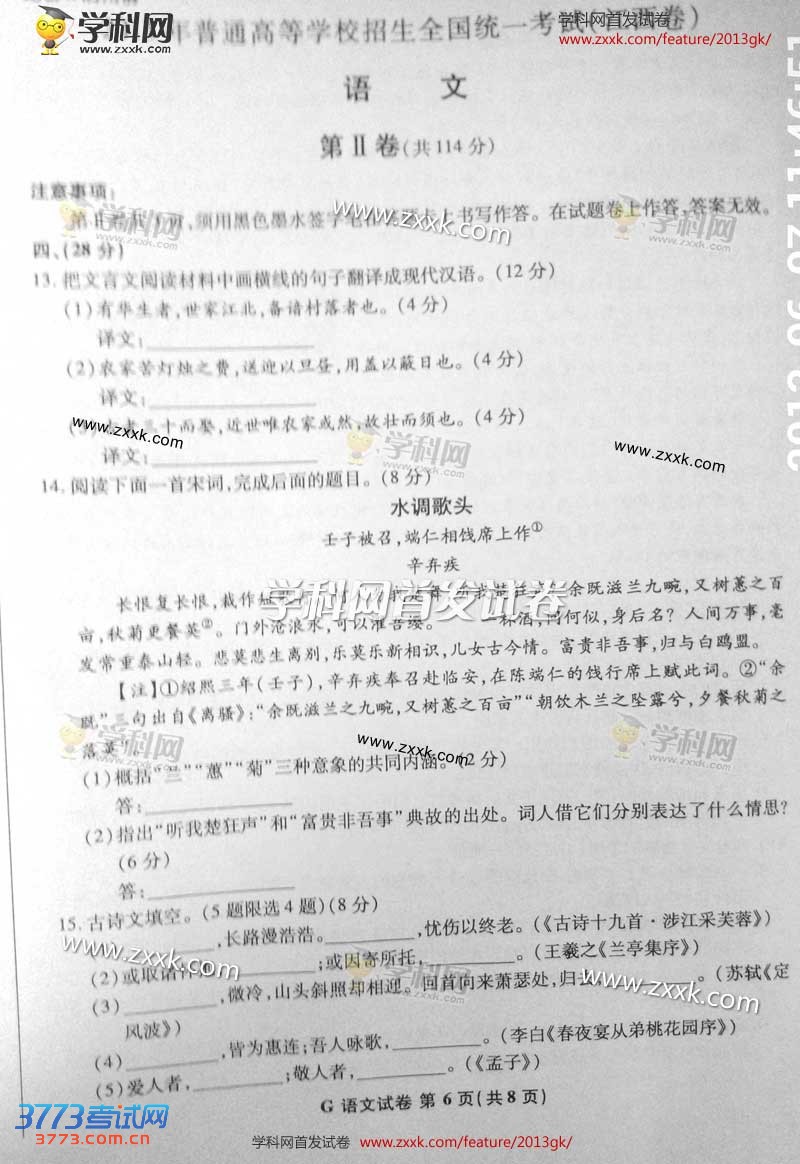 学科网 zxxk.com
年普通高等学校招生全国统一考试(江西卷)
学科网首发试卷
www.zxxk.com/feature/2013gk/
语 文
第Ⅱ卷(共114分)
注意事项:
第Ⅱ卷共 页,须用黑色墨水签字笔在答题卡上书写作答。在试题卷上作答,答案无效。
四、(28分)
13.把文言文阅读材料中画横线的句子翻译成现代汉语。(12分)
(1)有华生者,世家江北,备谙村落者也。(4分)
译文:
(2)农家苦灯烛之费,送迎以旦昼,用盖以蔽日也。(4分)
译文:
三十而娶,近世唯农家或然,故壮而须也。(4分)
www.zxxk.com
译文:
14.阅读下面一首宋词,完成后面的题目。(8分)
水调歌头
壬子被召,端仁相饯席上作①
辛弃疾
长恨复长恨,裁作短 余既滋兰九畹,又树蕙之百
学科网首发试卷
亩,秋菊更餐英②。门外沧浪水,可以濯吾缨。 一杯酒,问何似,身后名?人间万事,毫
发常重泰山轻。悲莫悲生离别,乐莫乐新相识,儿女古今情。富贵非吾事,归与白鸥盟。
【注】①绍熙三年(壬子),辛弃疾奉召赴临安,在陈端仁的饯行席上赋此词。②“余
既”三句出自《离骚》:“余既滋兰之九畹,又树蕙之百亩”“朝饮木兰之坠露兮,夕餐秋菊之
落英”
www.zxxk.com
(1)概括“兰”“蕙”“菊”三种意象的共同内涵。(2分)
答:
(2)指出“听我楚狂声”和“富贵非吾事”典故的出处。词人借它们分别表达了什么情思?
(6分)
答:
15.古诗文填空。(5题限选4题)(8分)
,长路漫浩浩。 ,忧伤以终老。(《古诗十九首·涉江采芙蓉》)
(2)或取诸 ;或因寄所托, 。(王羲之《兰亭集序》)
(3) ,微冷,山头斜照却相迎。回首向来萧瑟处,归 。(苏轼《定
风波》)
(4) ,皆为惠连;吾人咏歌, 。(李白《春夜宴从弟桃花园序》)
(5)爱人者, ;敬人者, 。(《孟子》)
G 语文试卷 第6页(共8页)
3773考试网
3773.com.cn
学科网首发试卷 www.zxxk.com/feature/2013gk/